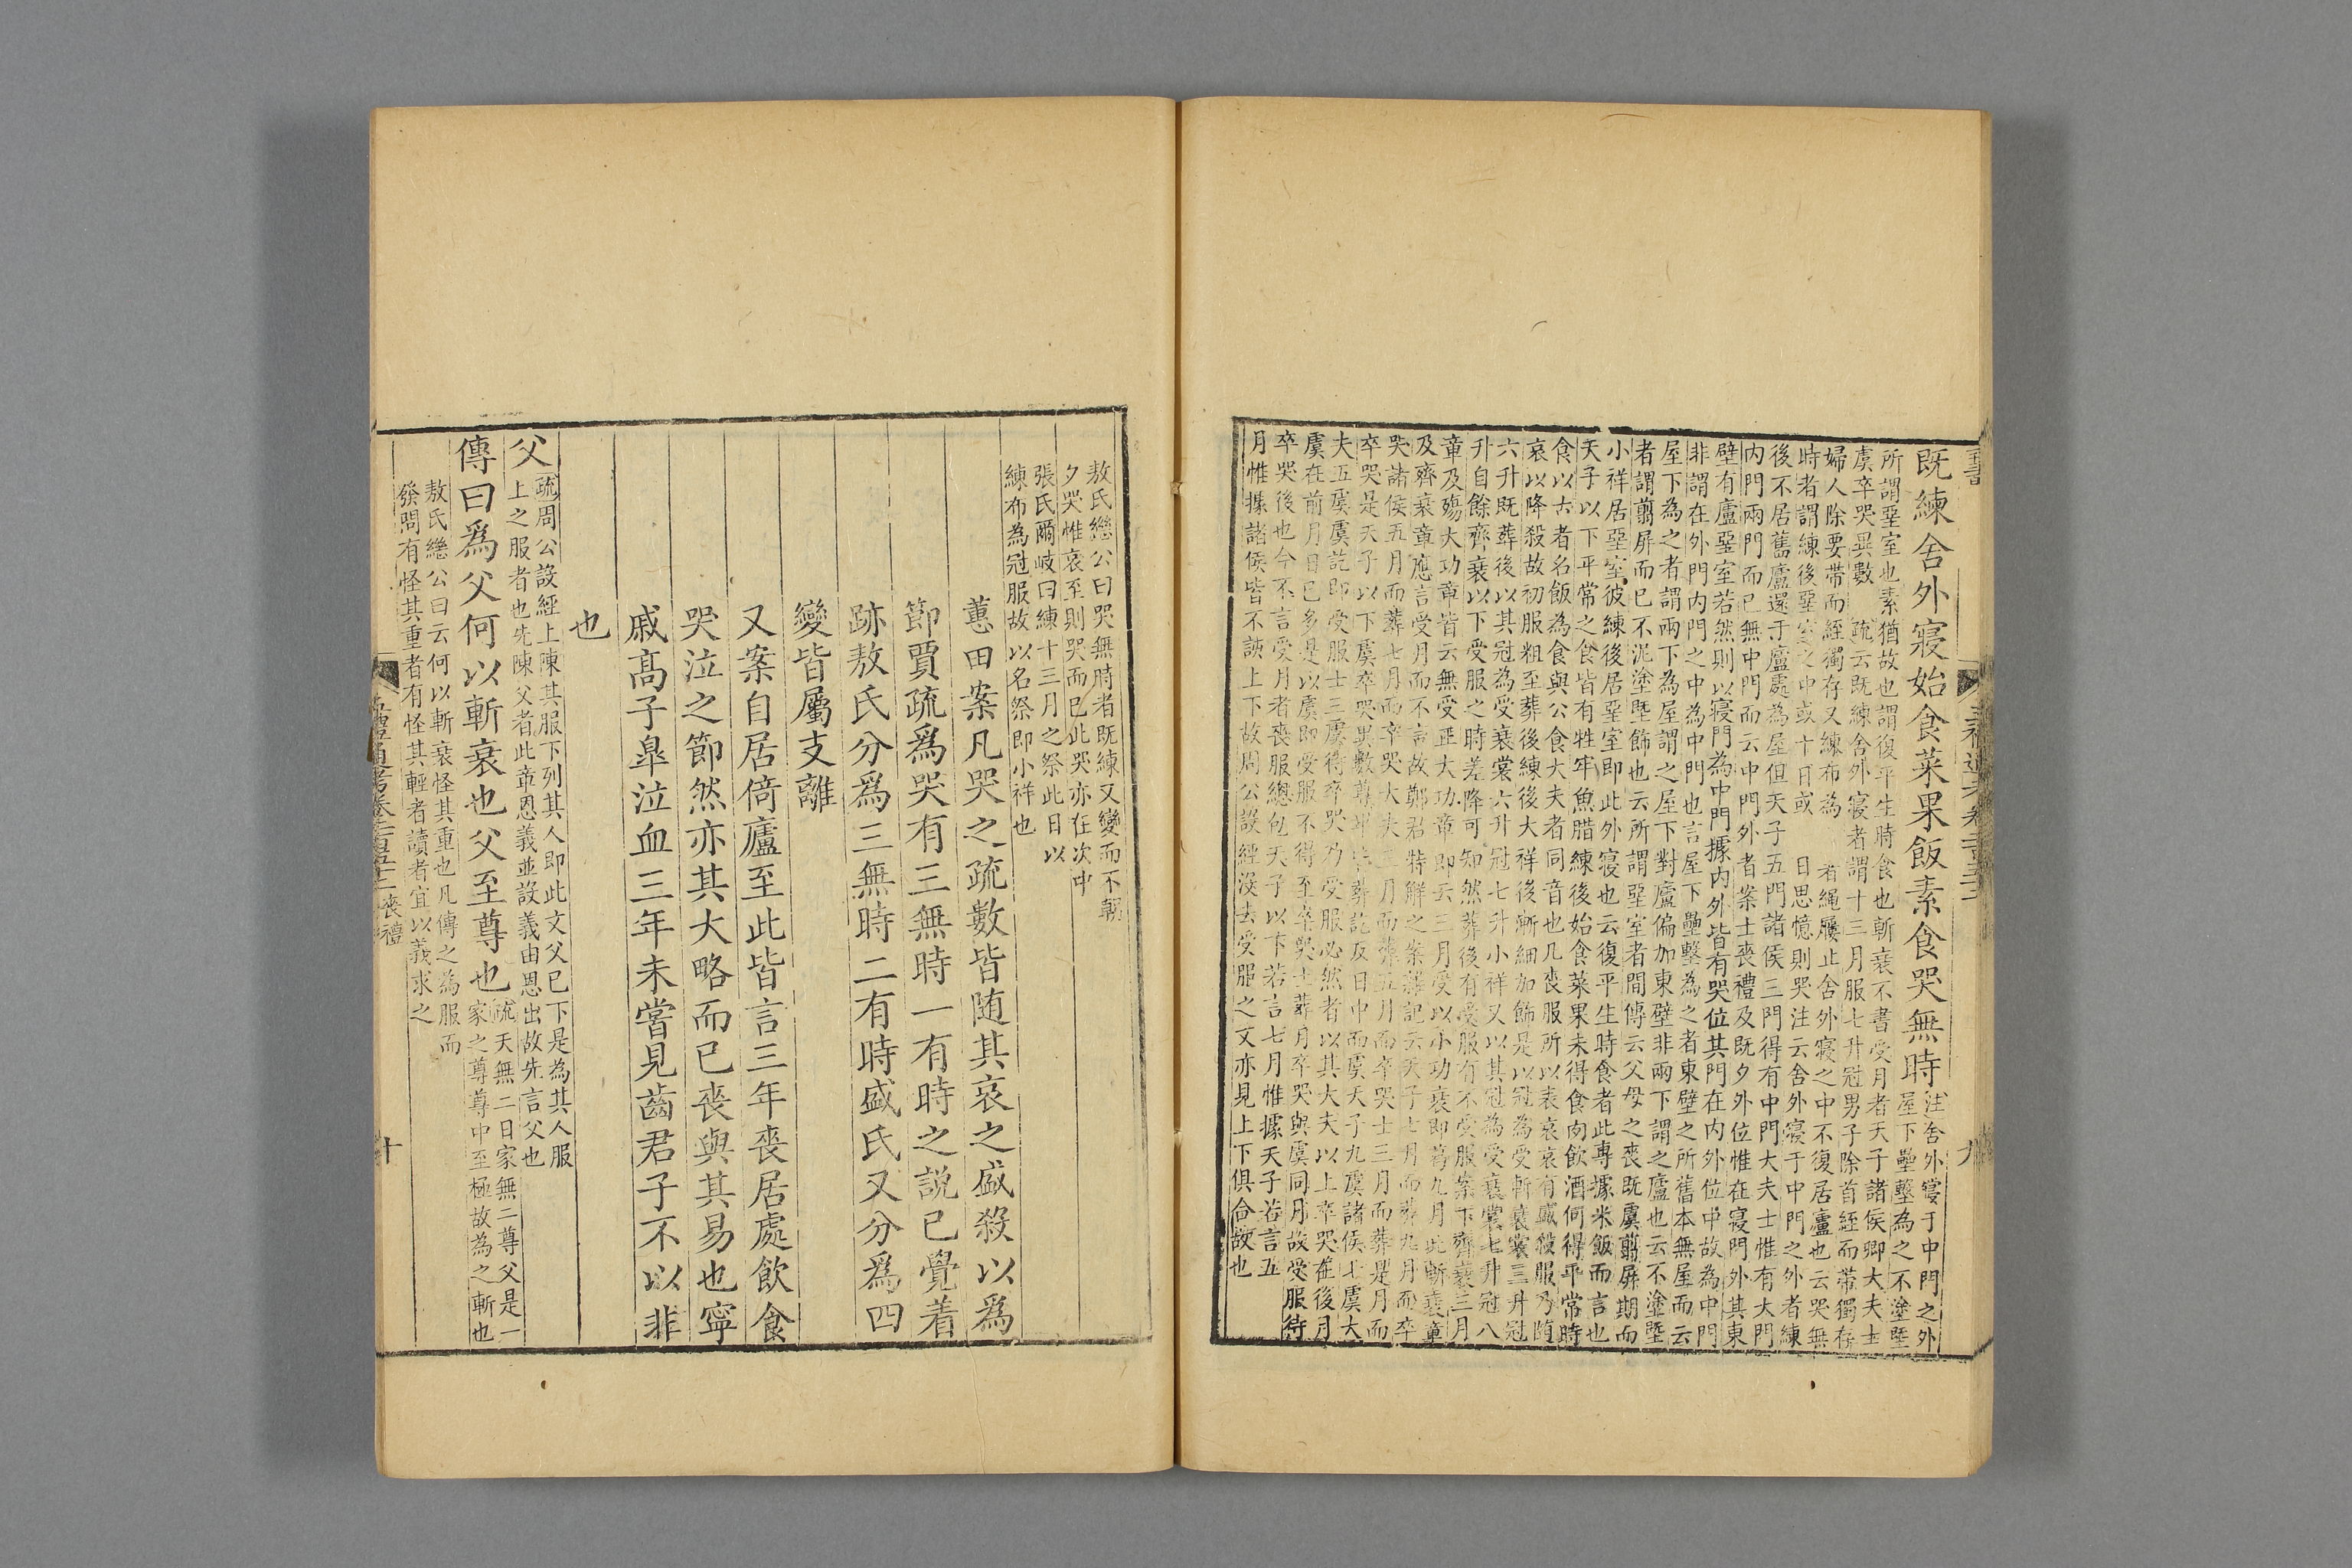 既練舍外寢始食菜果飯素食哭無時
注舍外寢于中門之外
屋下壘墼為之不塗塈
所謂堊室也素猶故也謂復平生時食也斬衰不書受月者天子諸侯卿大夫士
虞卒哭異數 疏云既練舍外寢者謂十三月服七升冠男子除首絰而帶獨存
婦人除要帶而絰獨存又練布為 者繩屨止舍外寢之中不復居廬也云哭無
時者謂練後堊室之中或十日或 日思憶則哭注云舍外寢于中門之外者練
後不居舊廬還于廬處為屋但天子五門諸侯三門得有中門大夫士惟有大門
內門兩門而已無中門而云中門外者案士喪禮及既夕外位惟在寢門外其東
壁有廬堊室若然則以寢門為中門據內外皆有哭位其門在內外位中故為中門
非謂在外門內門之中為中門也言屋下壘墼為之者東壁之所舊本無屋而云
屋下為之者謂兩下為屋謂之屋下對廬偏加東壁非兩下謂之廬也云不塗塈
者謂翦屏而已不泥塗塈飾也云所謂堊室者間傳云父母之喪既虞翦屏期而
小祥居堊室彼練後居堊室即此外寢也云復平生時食者此專據米飯而言也
天子以下平常之食皆有牲牢魚腊練後始食菜果未得食肉飲酒何得平常時
食以古者名飯為食與公食大夫者同音也凡喪服所以表哀哀有盛殺服乃隨
哀以降殺故初服粗至葬後練後大祥後漸細加飾是以冠為受斬衰裳三升冠
六升既葬後以其冠為受衰裳六升冠七升小祥又以其冠為受衰裳七升冠八
升自餘齊衰以下受服之時差降可知然葬後有受服有不受服案下齊衰三月
章及殤大功章皆云無受正大功章即云三月受以小功衰即葛九月此斬衰章
及齊衰章應言受月而不言故鄭君特解之案雜記云天子七月而葬九月而卒
哭諸侯五月而葬七月而卒哭大夫三月而葬五月而卒哭士三月而葬是月而
卒哭是天子以下虞卒哭異數尊卑 葬訖反日中而虞天子九虞諸侯七虞大
夫五虞士三虞訖即受服士三虞待卒哭乃受服必然者以其大夫以上卒哭在後月
虞在前月日已多是以虞即受服不得至卒哭士葬月卒哭與虞同月故受服待
卒哭後也今不言受月者喪服總包天子以下若言七月惟據天子若言五
月惟據諸侯皆不該上下故周公設經沒去受服之文亦見上下俱合故也
九
敖氏繼公曰哭無時者既練又變而不朝
夕哭惟哀至則哭而已此哭亦在次中
張氏爾岐曰練十三月之祭此日以
練布為冠服故以名祭即小祥也
蕙田案凡哭之疏數皆随其哀之盛殺以爲
節賈疏爲哭有三無時一有時之説已覺着
跡敖氏分爲三無時二有時盛氏又分爲四
變皆屬支離
又案自居倚廬至此皆言三年喪居處飲食
哭泣之節然亦其大略而已喪與其易也寧
戚高子臯泣血三年未嘗見齒君子不以非
也
父
疏周公設經上陳其服下列其人即此文父已下是為其人服
上之服者也先陳父者此章恩義並設義由恩出故先言父也
傳曰爲父何以斬衰也父至尊也
疏天無二日家無二尊父是一
家之尊尊中至極故為之斬也
敖氏繼公曰云何以斬衰怪其重也凡傳之為服而
發問有怪其重者有怪其輕者讀者宜以義求之
五禮通考卷二百五十二 喪禮
十